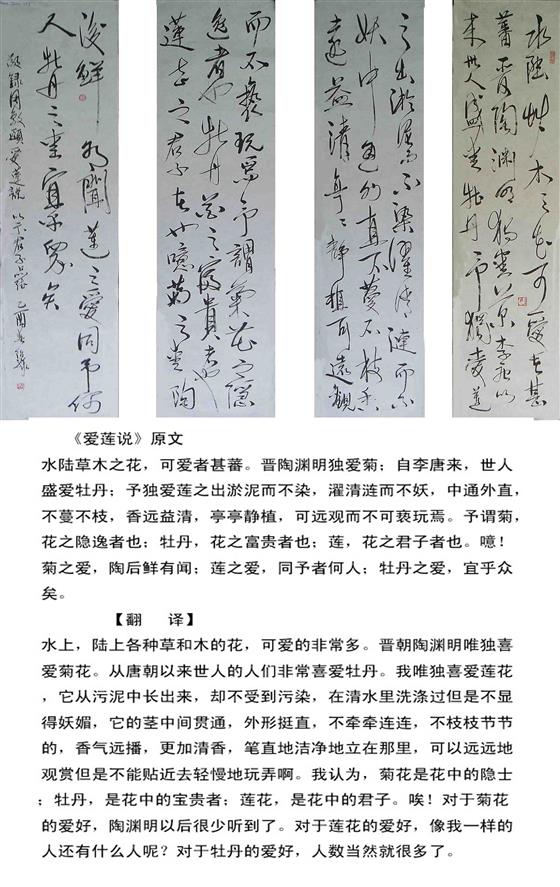 水陸艸木之花可愛者甚
蕃晋陶渊明独爱李唐以
来世人盛爱牡丹予獨愛蓮
之出淤泥而不染濯清涟而不
妖中通外直不蔓不枝香
遠益清亭々静植可遠觀
而不亵玩焉予謂菊花之隐
逸者也牡丹花之富貴者也
蓮花之君子者也噫菊之爱陶
後鲜有聞蓮之愛同予何
人牡丹之爱宜乎眾矣
録周敦頤爱蓮説 以示君子品格 乙酉
《爱莲说》原文
水陆草木之花，可爱者甚蕃。晋陶渊明独爱菊；自李唐来，世人
盛爱牡丹；予独爱莲之出淤泥而不染，濯清涟而不妖，中通外直，
不蔓不枝，香远益清，亭亭静植，可远观而不可亵玩焉。予谓菊，
花之隐逸者也；牡丹，花之富贵者也；莲，花之君子者也。噫！
菊之爱，陶后鲜有闻；莲之爱，同予者何人；牡丹之爱，宜乎众
矣。
【翻 译】
水上，陆上各种草和木的花，可爱的非常多。晋朝陶渊明唯独喜
爱菊花。从唐朝以来世人的人们非常喜爱牡丹。我唯独喜爱莲花
，它从污泥中长出来，却不受到污染，在清水里洗涤过但是不显
得妖媚，它的茎中间贯通，外形挺直，不牵牵连连，不枝枝节节
的，香气远播，更加清香，笔直地洁净地立在那里，可以远远地
观赏但是不能贴近去轻慢地玩弄啊。我认为，菊花是花中的隐士
；牡丹，是花中的宝贵者；莲花，是花中的君子。唉！对于菊花
的爱好，陶渊明以后很少听到了。对于莲花的爱好，像我一样的
人还有什么人呢？对于牡丹的爱好，人数当然就很多了。